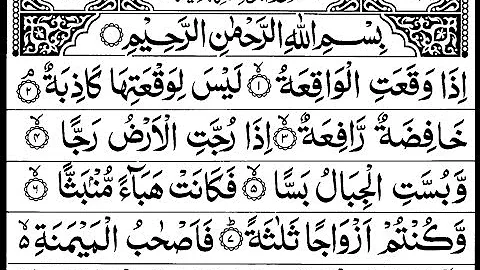 بِسْمِ اللهِ الرَّحْمٰنِ الرَّحِيْمِ
اِذَا وَقَعَتِ الْوَاقِعَةُ ۙ﴿۱﴾ لَيْسَ لِوَقْعَتِهَا كَاذِبَةٌ ۘ﴿۲﴾
خَافِضَةٌ رَّافِعَةٌ ۙ﴿۳﴾ اِذَا رُجَّتِ الْاَرْضُ رَجًّا ۙ﴿۴﴾
وَّبُسَّتِ الْجِبَالُ بَسًّا ۙ﴿۵﴾ فَكَانَتْ هَبَآءً مُّنْۢبَثًّا ۙ﴿۶﴾
وَّكُنْتُمْ اَزْوَاجًا ثَلٰثَةً ؕ﴿۷﴾ فَاَصْحٰبُ الْمَيْمَنَةِ ۙ۵